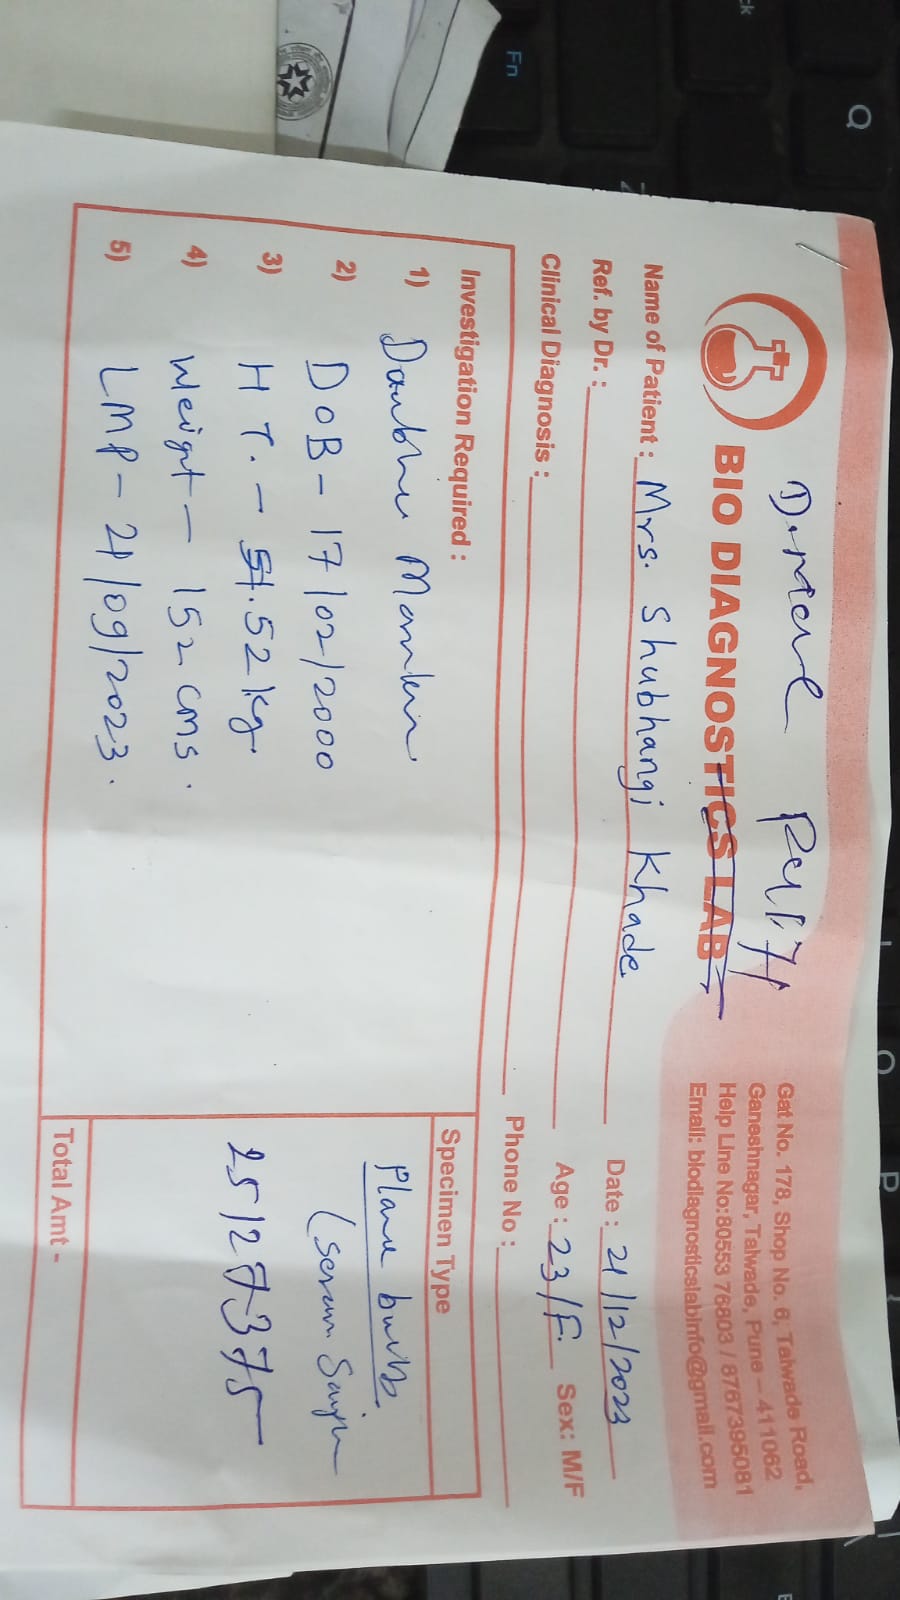 BIO DIAGNOSTICS LAB
Gat No. 178, Shop No. 6, Talwade Road,
Ganeshnagar, Talwade, Pune – 411062
Help Line No:80553 76803 / 8767395081
Email: biodiagnosticslabinfo@gmail.com
Name of Patient : Mrs. Shubhangi Khade
Date : 21/12/2023
Ref. by Dr. :
Age : 23/F. Sex: M/F
Clinical Diagnosis :
Phone No. :
Investigation Required :
Specimen Type
1)
2) DOB - 17/02/2000
3) HT. - 52 kg
4) Weight - 152 cms.
5) LMP - 21/09/2023.
Plane
(Serum
25127375
Total Amt -
Fn
Q
P